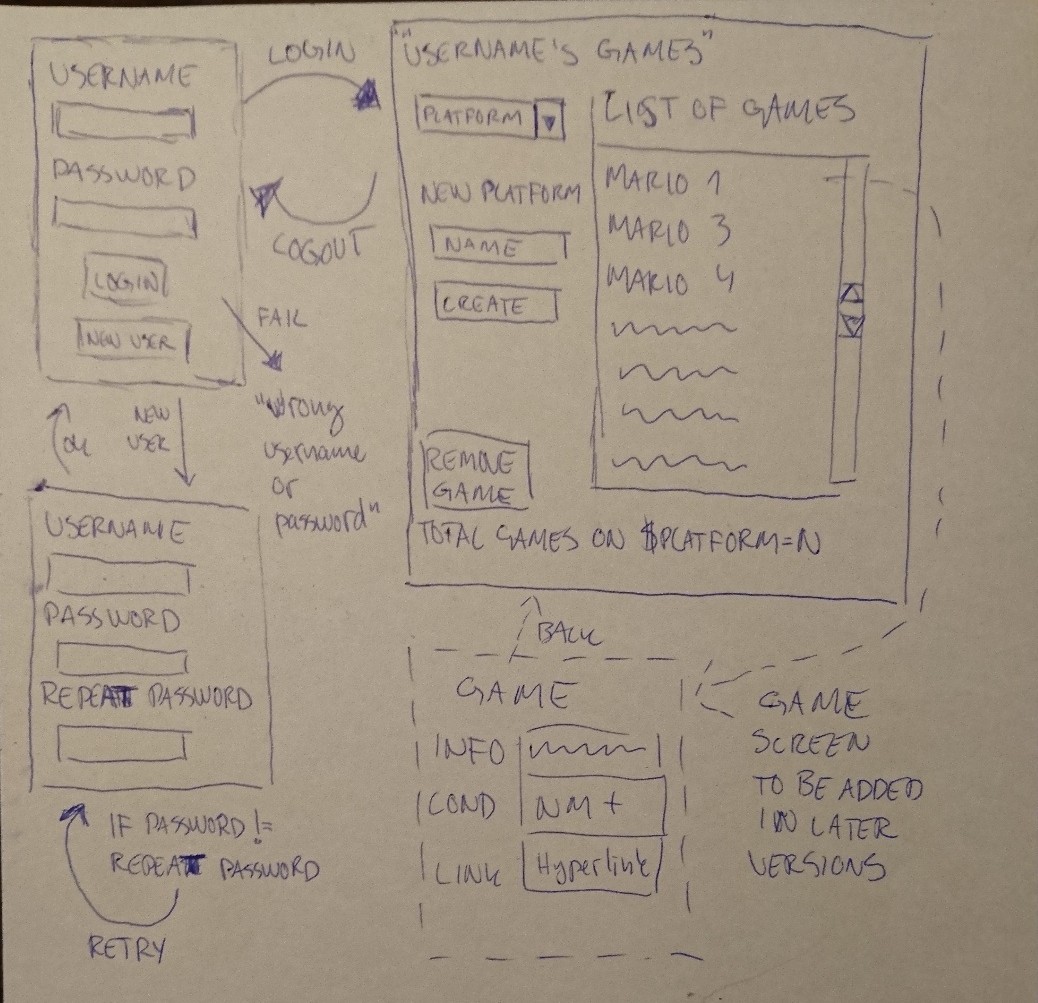 USERNAME
PASSWORD
LOGIN
NEW USER
LOGIN
LOGOUT
FAIL
"Wrong
username
or
password"
OK
NEW
USER
USERNAME
PASSWORD
REPEAT PASSWORD
IF PASSWORD !=
REPEAT PASSWORD
RETRY
"USERNAME'S GAMES"
PLATFORM
NEW PLATFORM
NAME
CREATE
REMOVE
GAME
LIST OF GAMES
MARIO 1
MARIO 3
MARIO 4
TOTAL GAMES ON $PLATFORM=N
BACK
GAME
INFO
COND NM+
LINK Hyperlink
GAME
SCREEN
TO BE ADDED
IN LATER
VERSIONS